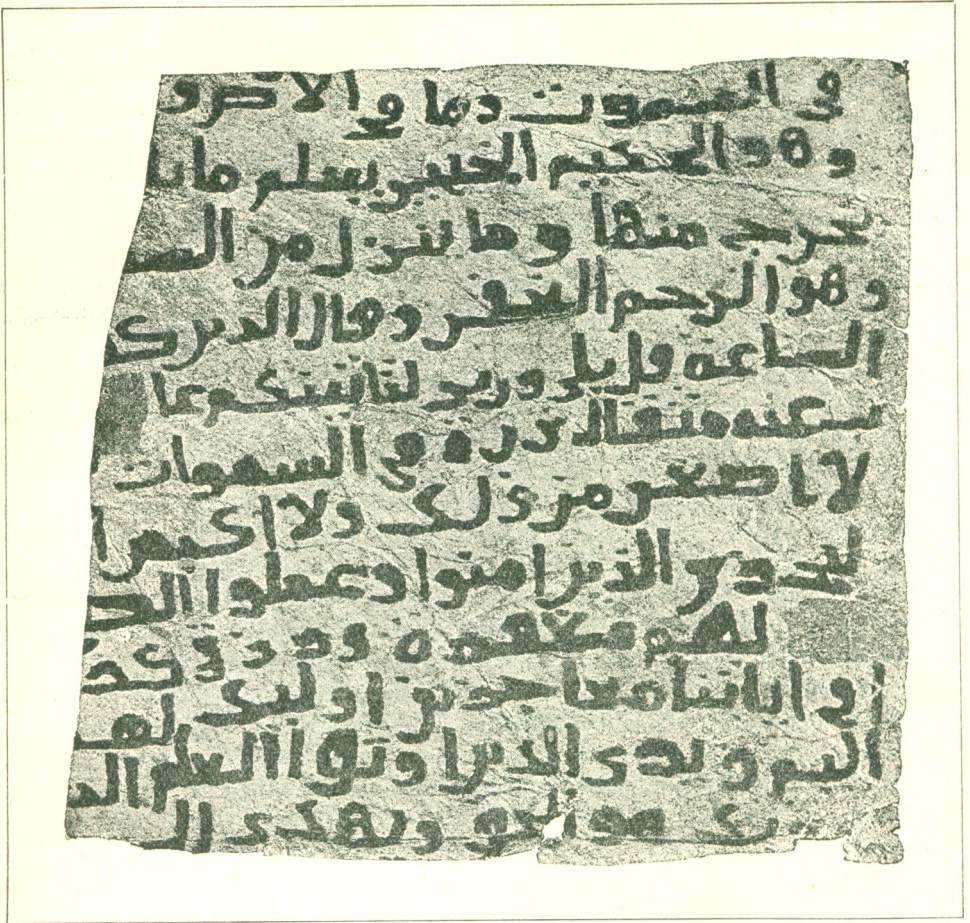 في السموت وما في الارض و
وهو الحكيم الخبير يعلم ما يلـ
يخرج منها وما ينزل من السـ
وهو الرحم الغفر وقال الذين كفـ
الساعة قل بلى وربي لتاتينكم عا
عنه مثقال ذرة في السموات
لا اصغر من ذلك ولا اكبر ا
ليجزي الذين امنوا وعملوا الصـ
لهم مغفرة ورزق
في اياتنا معاجزين اولئك لهم
اليم ويرى الذين اوتوا العلم الذ
ـك هو الحق ويهدي الى